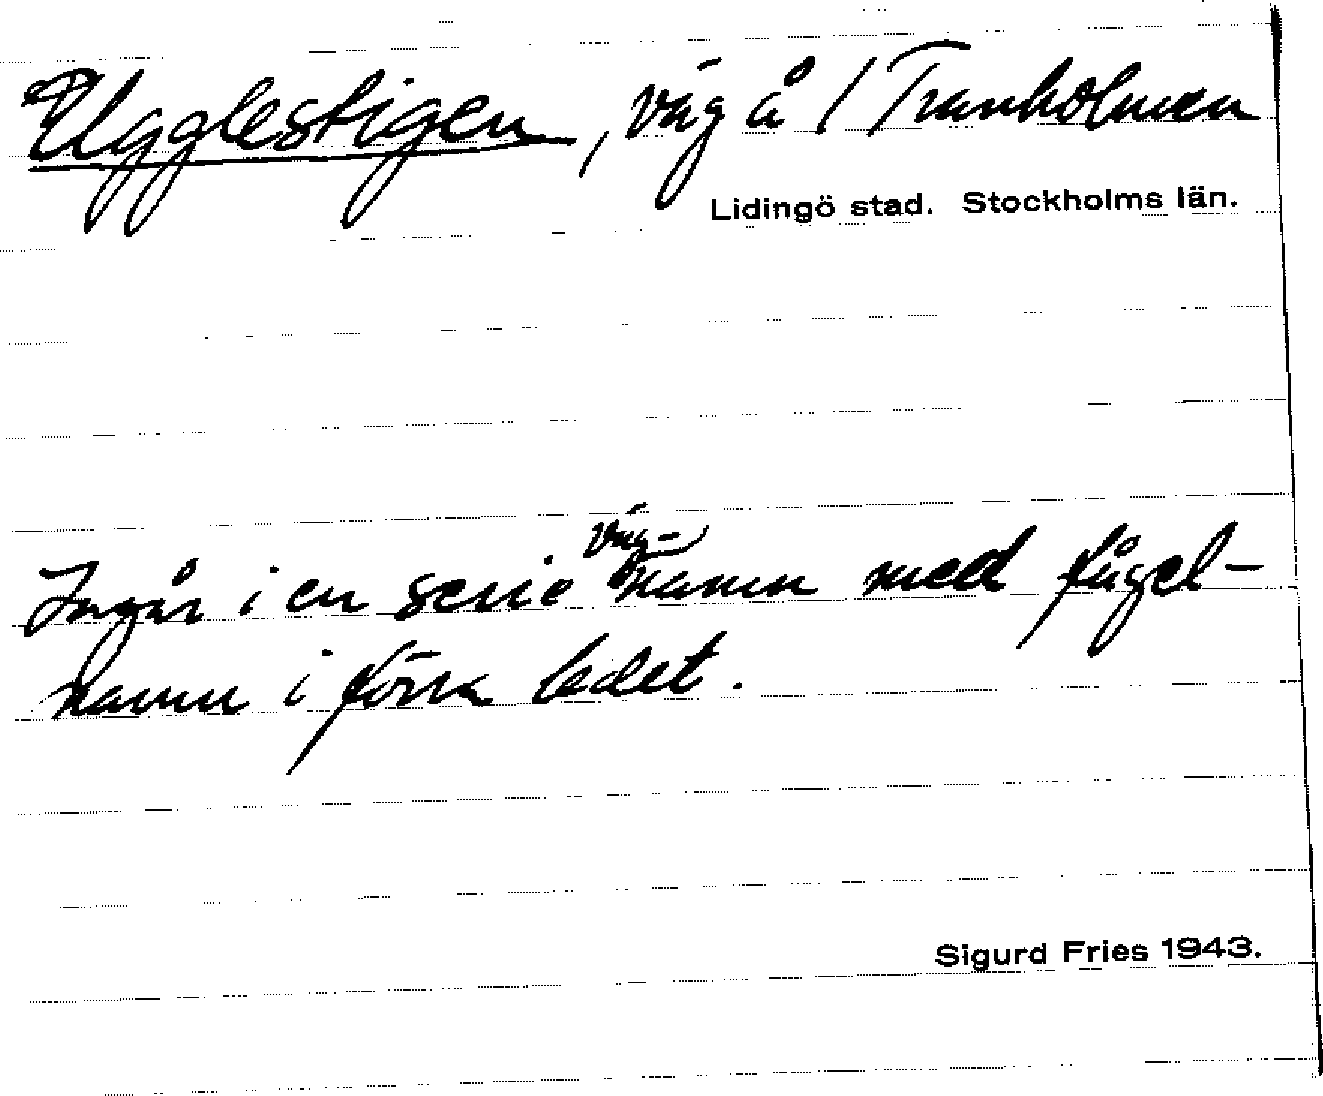 Ugglestigen, väg å / Tranholmen
Lidingö stad. Stockholms län.
Ingår i en serie väg-namn med fågel-
namn i förra ledet.
Sigurd Fries 1943.